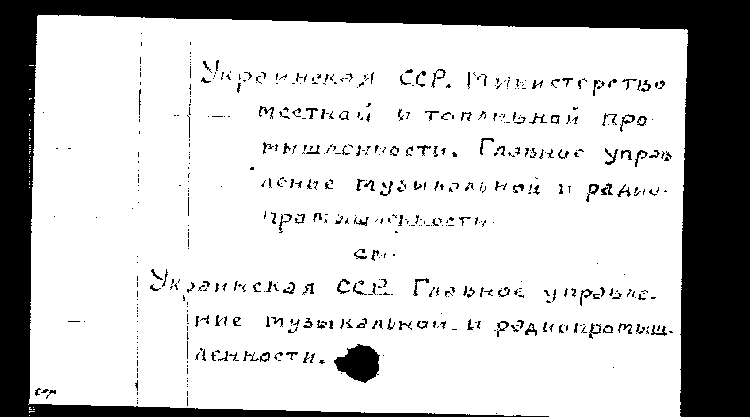 Украинская ССР. Министерство
местной и топливной про-
мышленности. Главное управ
ление музыкальной и радио-
промышленности
см.
Украинская ССР. Главное управле-
ние музыкальной и радиопромыш-
ленности.